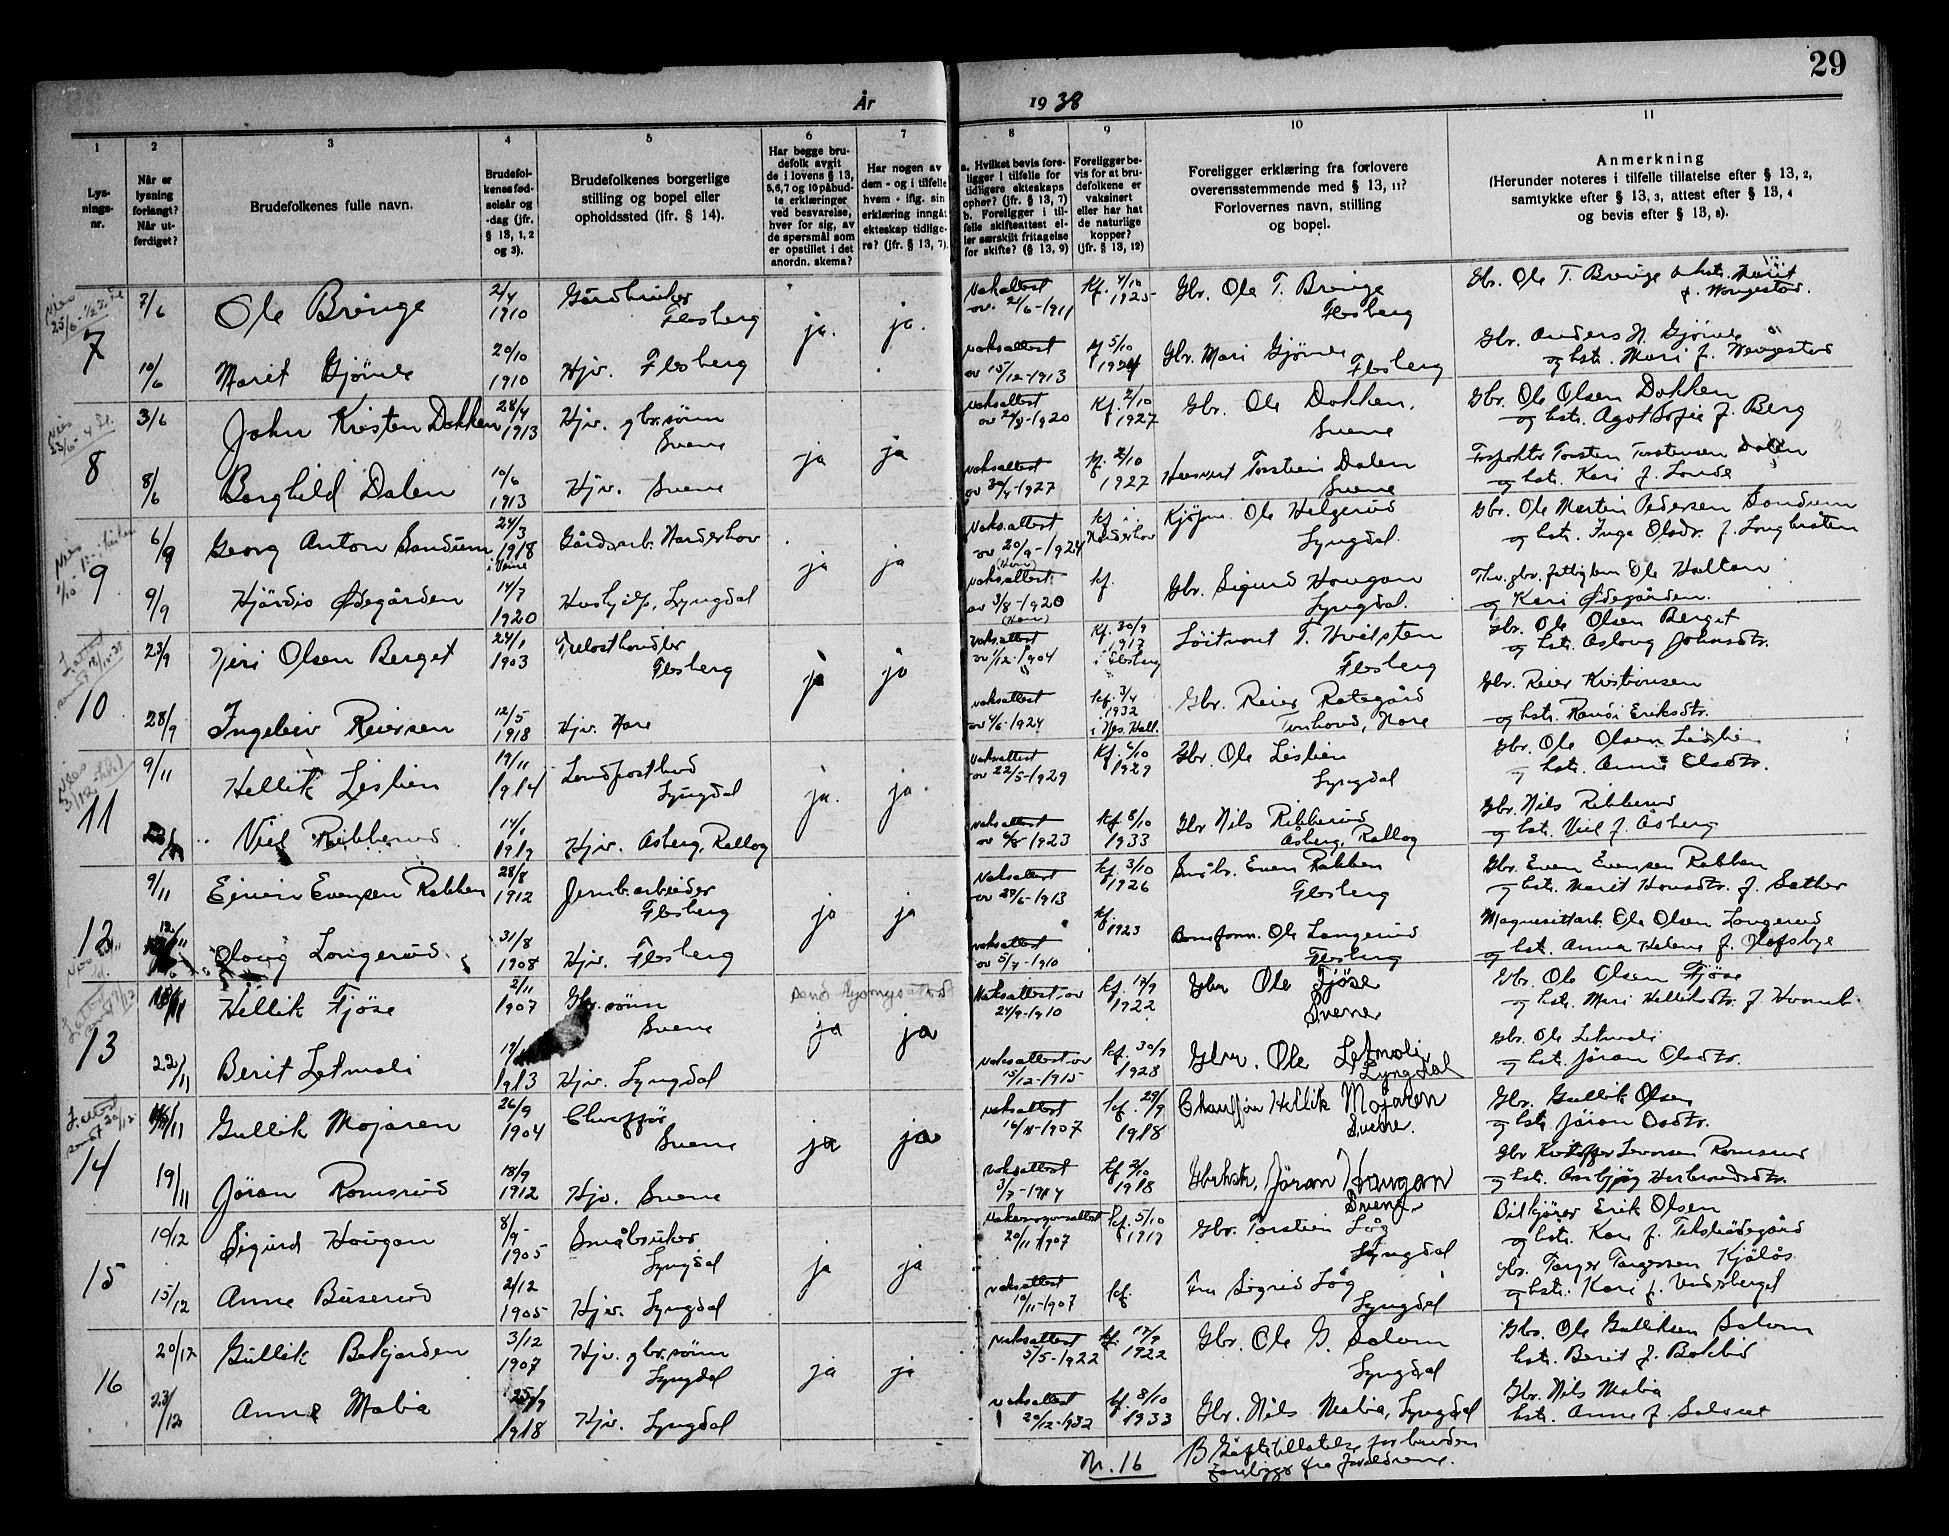 29
År 1938
1
Lys-
nings-
nr.
2
Når er
lysning
forlangt?
Når ut-
ferdiget?
3
Brudefolkenes fulle navn.
4
Brudefol-
kenes fød-
selsår og
-dag (jfr.
§ 13, 1, 2
og 3).
5
Brudefolkenes borgerlige
stilling og bopel eller
opholdssted (ifr. § 14).
6
Har begge bru-
defolk avgit
de i lovens § 13,
5,6,7 og 10 påbud-
te erklæringer
ved besvarelse,
hver for sig, av
de spørsmål som
er opstillet i det
anordn. skema?
7
Har nogen av
dem - og i tilfelle
hvem - iflg. sin
erklæring inngått
ekteskap tidlige-
re? (jfr. § 13, 7).
8
a. Hvilket bevis fore-
ligger i tilfelle for
tidligere ekteskaps
ophør? (jfr. § 13, 7)
b. Foreligger i til-
felle skifteattest el-
ler særskilt fritagelse
for skifte? (§ 13, 9)
9
Foreligger be-
vis for at bru-
defolkene er
vaksinert
eller har hat
de naturlige
kopper?
(jfr. § 13, 12)
10
Foreligger erklæring fra forlovere
overensstemmende med § 13, 11?
Forlovernes navn, stilling
og bopel.
11
Anmerkning
(Herunder noteres i tilfelle tillatelse efter § 13, 2,
samtykke efter § 13, 3, attest efter § 13, 4
og bevis efter § 13, 8).
7
7/6 Ole Bringe 2/4 1910 Gårdbruker Flesberg ja. ja. Vaksattest av 21/6-1911 Kf. 4/10 1925 Gbr. Ole T. Bringe Flesberg Gbr. Ole T. Bringe o hstr. Marit f. Wongestad.
10/6 Marit Gjömle 20/10 1910 Hjv. Flesberg vaksattest av 15/12-1913 Kf 5/10 1924 Gbr. Mari Gjömle Flesberg Gbr. Anders N. Gjömle og hstr. Mari f. Wengestad
8
3/6 John Kristen Dokken 28/4 1913 Hjv. gbr.sönn Svene ja ja vaksattest av 24/8-1920 Kf. 2/10 1927 Gbr. Ole Dokken. Svene Gbr. Ole Olsen Dokken og hstr. Agot Sofie f. Berg
8/6 Borghild Dalen 10/6 1913 Hjv. Svene vaksattest av 30/4-1927 Kf. 2/10 1927 Torstein Dalen Svene Torsten Torstensen Dalen og hstr. Kari f. Londe
9
6/9 Georg Anton Sandum 24/3 1918 Gårdsarb. Norderhov ja ja Vaks.attest av 20/9-1924 kf. Norderhov Kjöpm. Ole Helgerud Lyngdal. Gbr. Ole Martin Pedersen Sandum og hstr. Inga Olsdr.
9/9 Hjördis Ødegården 14/7 1920 Hushjelp, Lyngdal vaks.attest. av 3/8-1920 kf. Gbr. Sigurd Haugan Lyngdal. Ole Halton og Kari Ødegården.
10
23/9 Niri Olsen Berget 24/1 1903 Trelasthandler Flesberg ja ja vaks.attest av 1/12-1904 Kf. 30/9 1917 i Flesberg Löitnant T. Hvilsten Flesberg Gbr. Ole Olsen Berget og hstr. Aslaug Johnsdtr.
28/9 Ingeleiv Reiersen 12/5 1918 Hjv. Nore vaksattest av 4/6-1924 kf. 3/4 1932 i Nes. Hall. Gbr. Reier Rotegård Tunhovd, Nore Gbr. Reier Kristiansen og hstr. Randi Eriksdtr.
11
9/11 Hellik Lislien 19/11 1914 Landpostbud Lyngdal ja. ja. Vaksattest av 22/5-1929 Kf. 6/10 1929 Gbr. Ole Lislien Lyngdal Gbr. Ole Olsen Lislien og hstr. Anne Olsdtr.
Viel Ribberud 14/1 1919 Hjv. Åsberg, Rollag vaksattest av 6/8-1923 Kf 8/10 1933 Gbr Nils Ribberud Åsberg, Rollag Gbr. Nils Ribberud og hstr. Viel f. Åsberg
12
9/11 Einvin Evensen Rabben 28/8 1912 Jernb.arbeider Flesberg ja ja vaksattest av 29/6-1913 kf. 3/10 1926 Småbr. Even Rabben Flesberg Gbr. Even Evensen Rabben og hstr. Marit Hansdtr. f. Sæther
Olaug Langerud 31/8 1908 Hjv. Flesberg vaksattest av 5/7-1910 Kf. 1923 Ole Langerud Flesberg Magnesittarb. Ole Olsen Langerud og hstr. Anna Helene f. Olafsbye
13
Hellik Fjöse 2/11 1907 Gbr.sönn Svene ja ja Vaksattest av 24/9-1910 kf. 17/9 1922 Gbr Ole Fjöse Svene Gbr. Ole Olsen Fjöse og hstr. Mari Helliksdtr. f.
22/11 Berit Letmoli 1913 Hjv. Lyngdal vaksattest av 15/12-1915 kf. 30/9 1928 Gbr. Ole Letmoli, Lyngdal Gbr. Ole Letmoli og hstr. Jöran Olsdtr.
14
Gullik Mojaren 26/9 1904 Chaufför Svene ja ja vaksattest 16/11-1907 kf. 29/9 1918 Chauffør Hellik Mojaren Svene. Gbr. Gullik Olsen og hstr. Jöran Olsdtr.
19/11 Jöran Romsrud 18/9 1912 Hjv. Svene vaksattest 3/7-1914 kf 2/10 1918 Jöran Haugan Svene. Gbr Kristoffer Romsrud og hstr. Ambjörg Herbrandsdtr.
15
10/12 Sigurd Haugan 8/9 1905 Småbruker Lyngdal ja ja 20/11 1907 kf. 5/10 1919 Gbr. Torstein Låg Lyngdal Bilkjörer Erik Olsen og hstr. Kari f.
15/12 Anne Buserud 2/12 1905 Hjv. Lyngdal vaksattest 10/11-1907 kf. Fru Sigrid Låg Lyngdal Gbr. Torger Torgersen Kjölås og hstr. Kari f. Underberget
16
20/12 Gullik Bekjorden 3/12 1907 Hjv. gbr.sönn Lyngdal ja ja vaksattest 5/5-1922 kf. 17/9 1922 Gbr. Ole G. Solum Lyngdal Gbr. Ole Gulliksen Solum hstr. Berit f.
23/12 Anne Mobia 25/9 1918 Hjv. Lyngdal vaksattest 20/12-1932 kf. 8/10 1933 Gbr. Nils Mobia, Lyngdal Gbr. Nils Mobia hstr. Anne f.
Nr. 16 B. Giftetillatelse for bruden foreligger fra foreldrene.